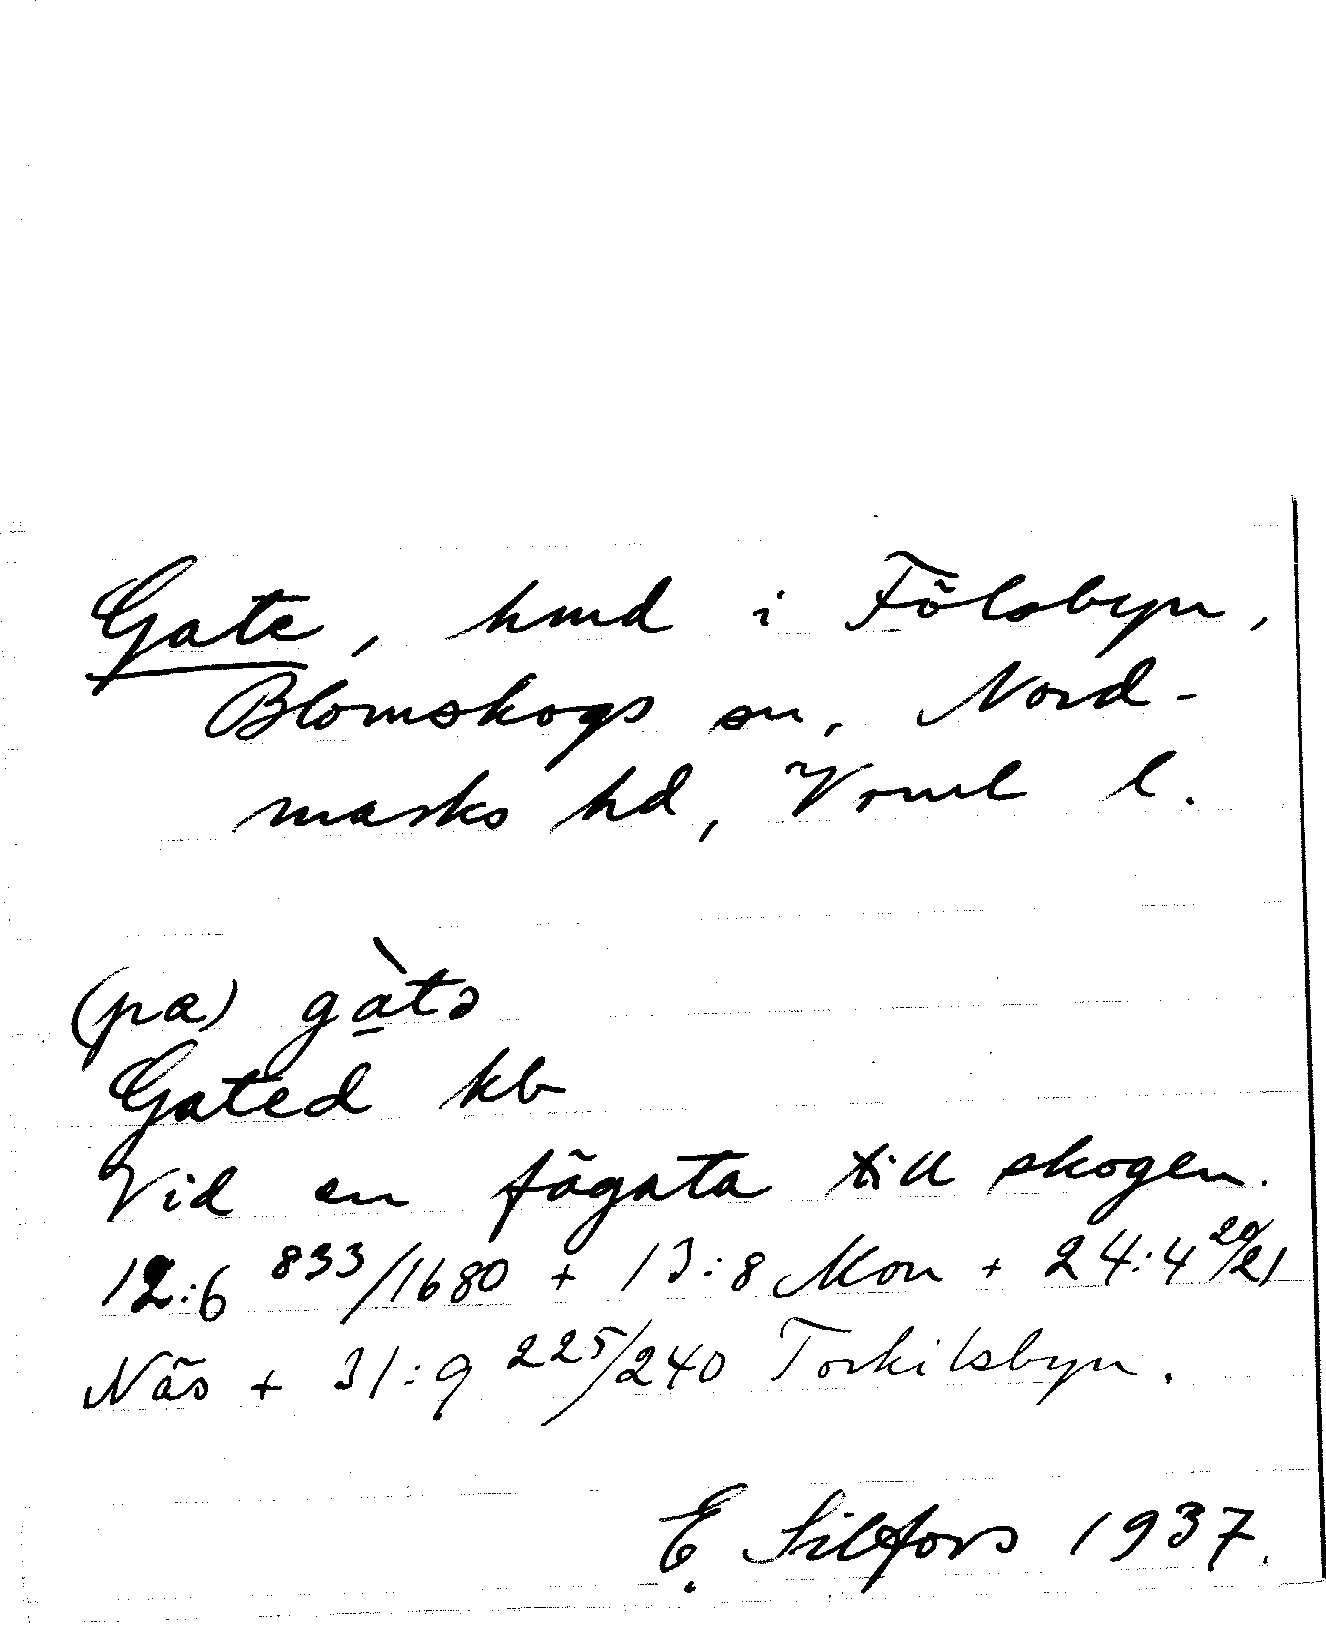 Gate, hmd i Fölsbyn,
Blomskogs sn, Nord-
marks hd, Vrml l.
(pa) gàtə
Gated kb
Vid en fägata till skogen.
12:6 833/1680 + 13:8 Mon + 24:4 20/21
Näs + 31:9 225/240 Torkilsbyn.
E. Silfors 1937.